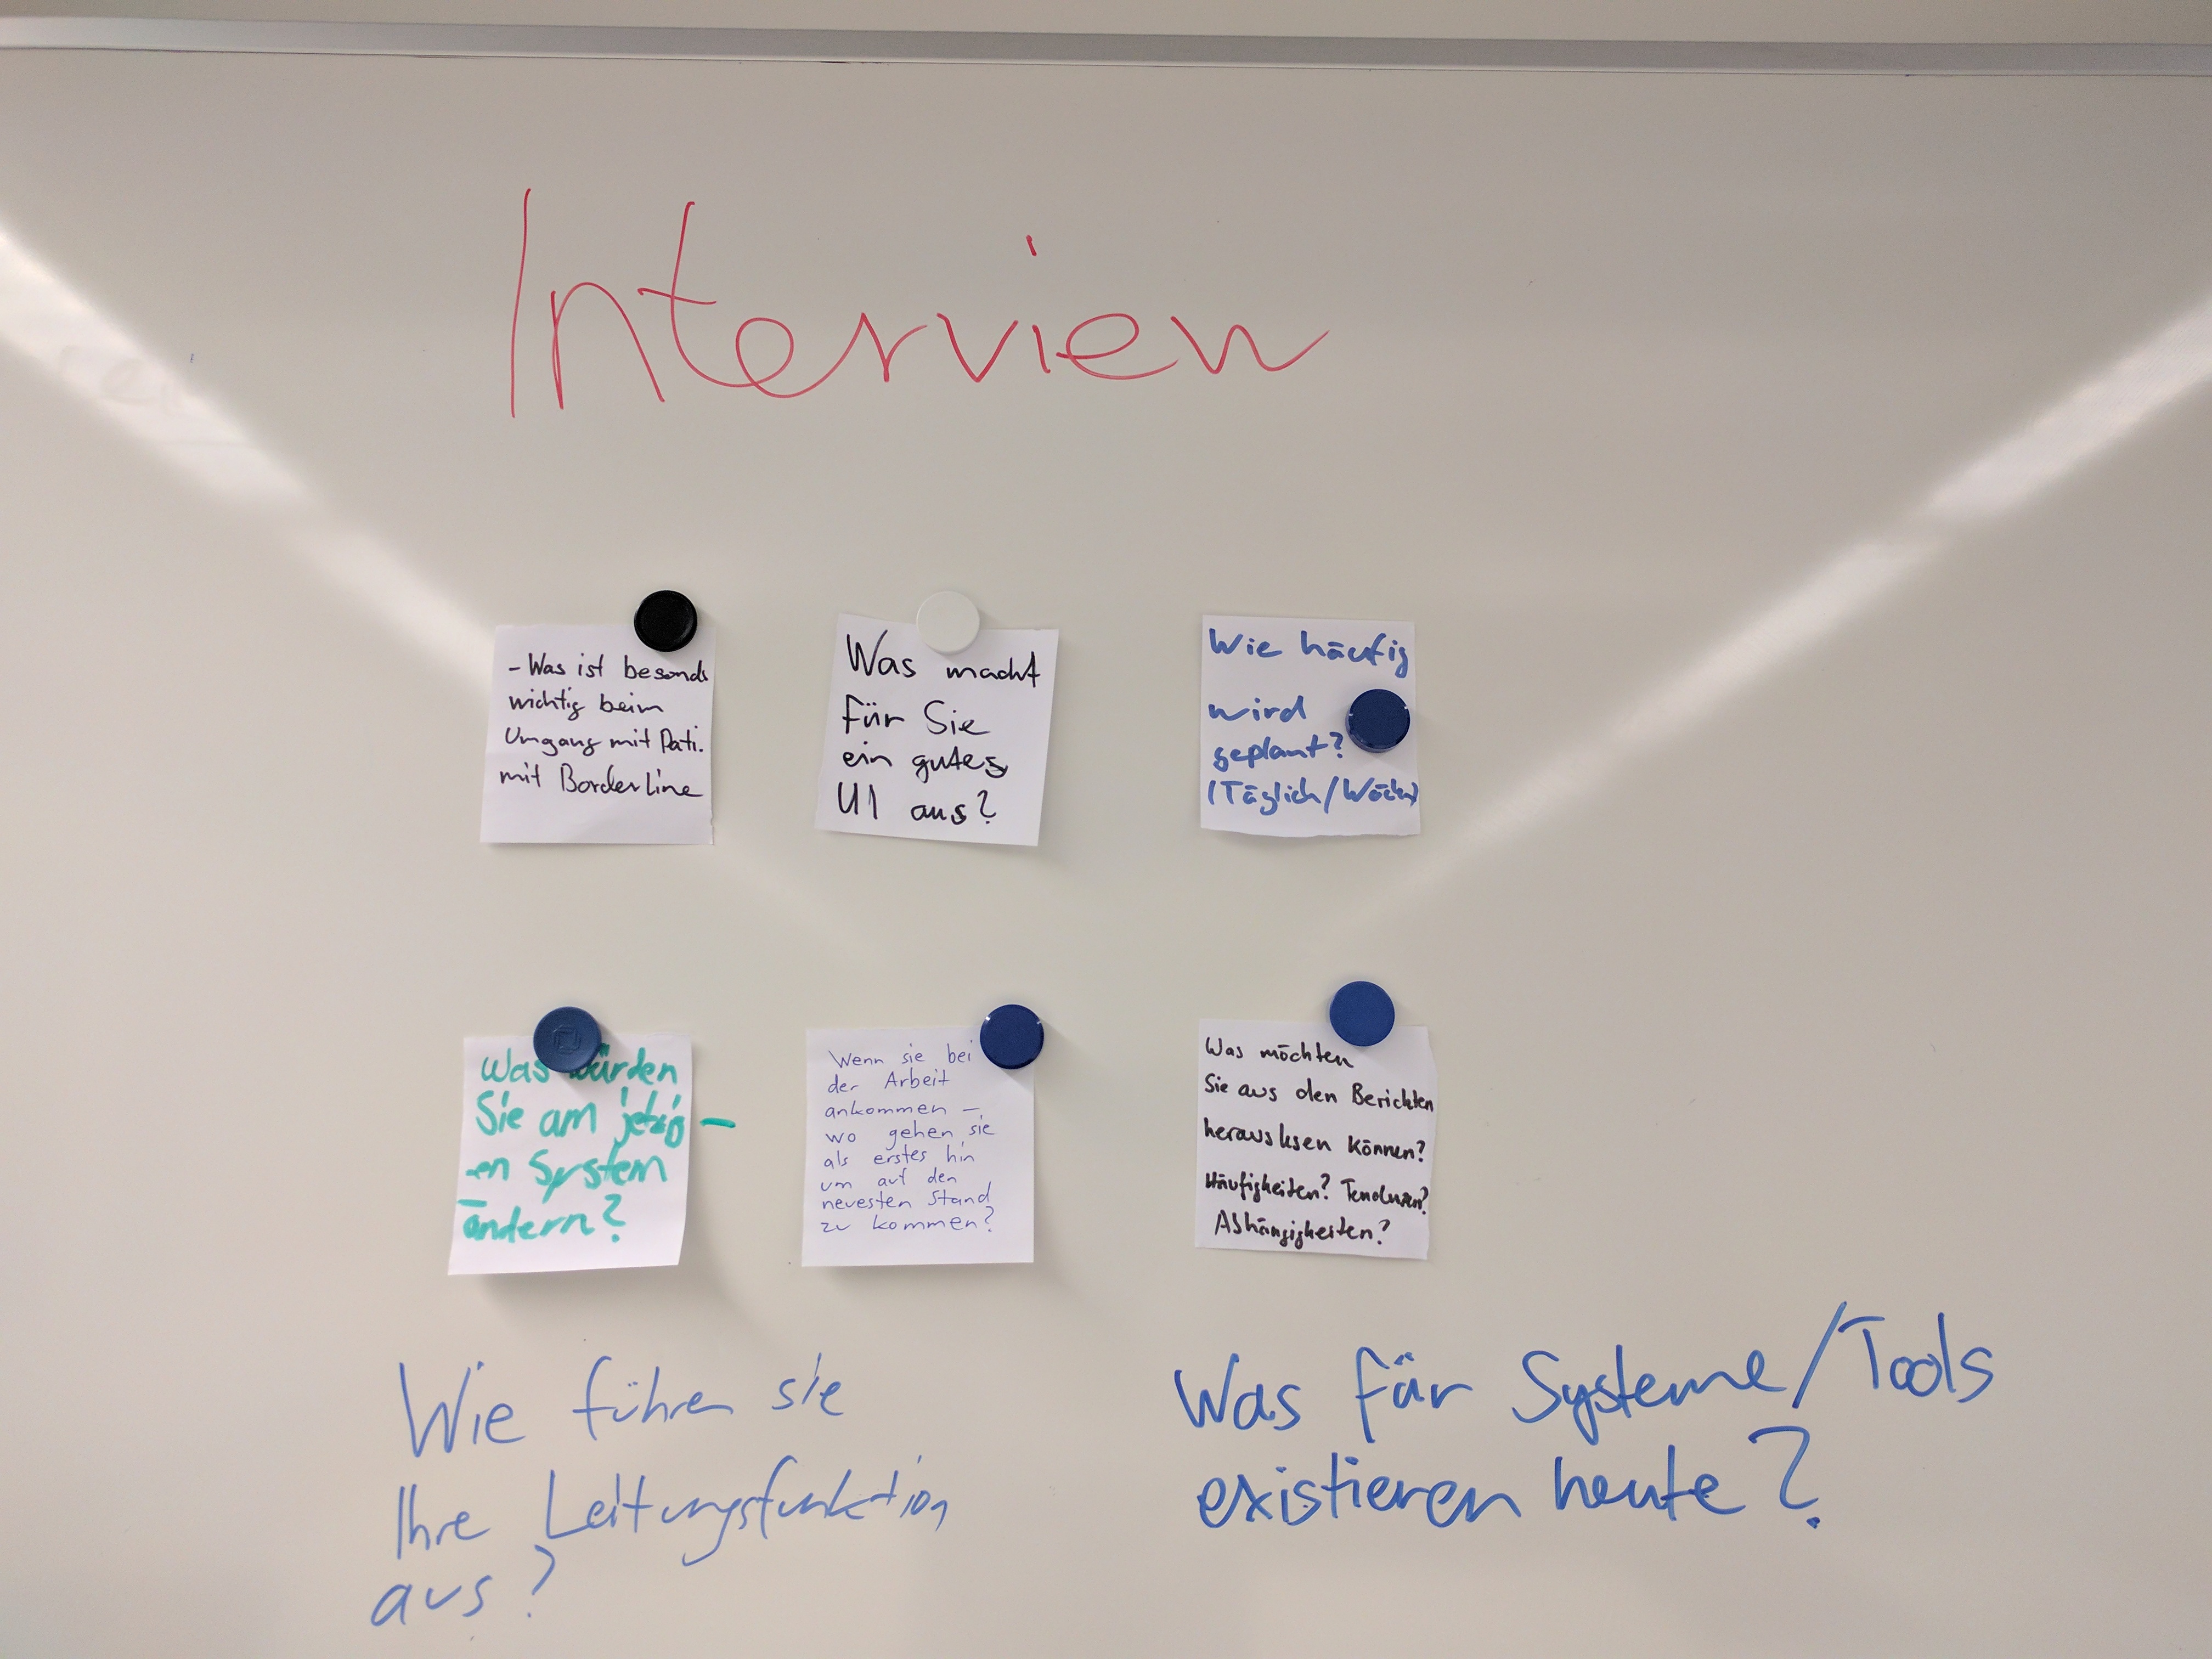 Interview
- Was ist besonds
wichtig beim
Umgang mit Pati.
mit Borderline
Was macht
für Sie
ein gutes
UI aus?
Wie häufig
wird
geplant?
(Täglich/Wöch)
Was würden
Sie am jetzig-
-en System
ändern?
Wenn sie bei
der Arbeit
ankommen -
wo gehen sie
als erstes hin
um auf den
neuesten Stand
zu kommen?
Was möchten
Sie aus den Berichten
herauslesen können?
Häufigkeiten? Tendenzen?
Abhängigkeiten?
Wie führen sie
Ihre Leitungsfunktion
aus?
Was für Systeme/Tools
existieren heute?